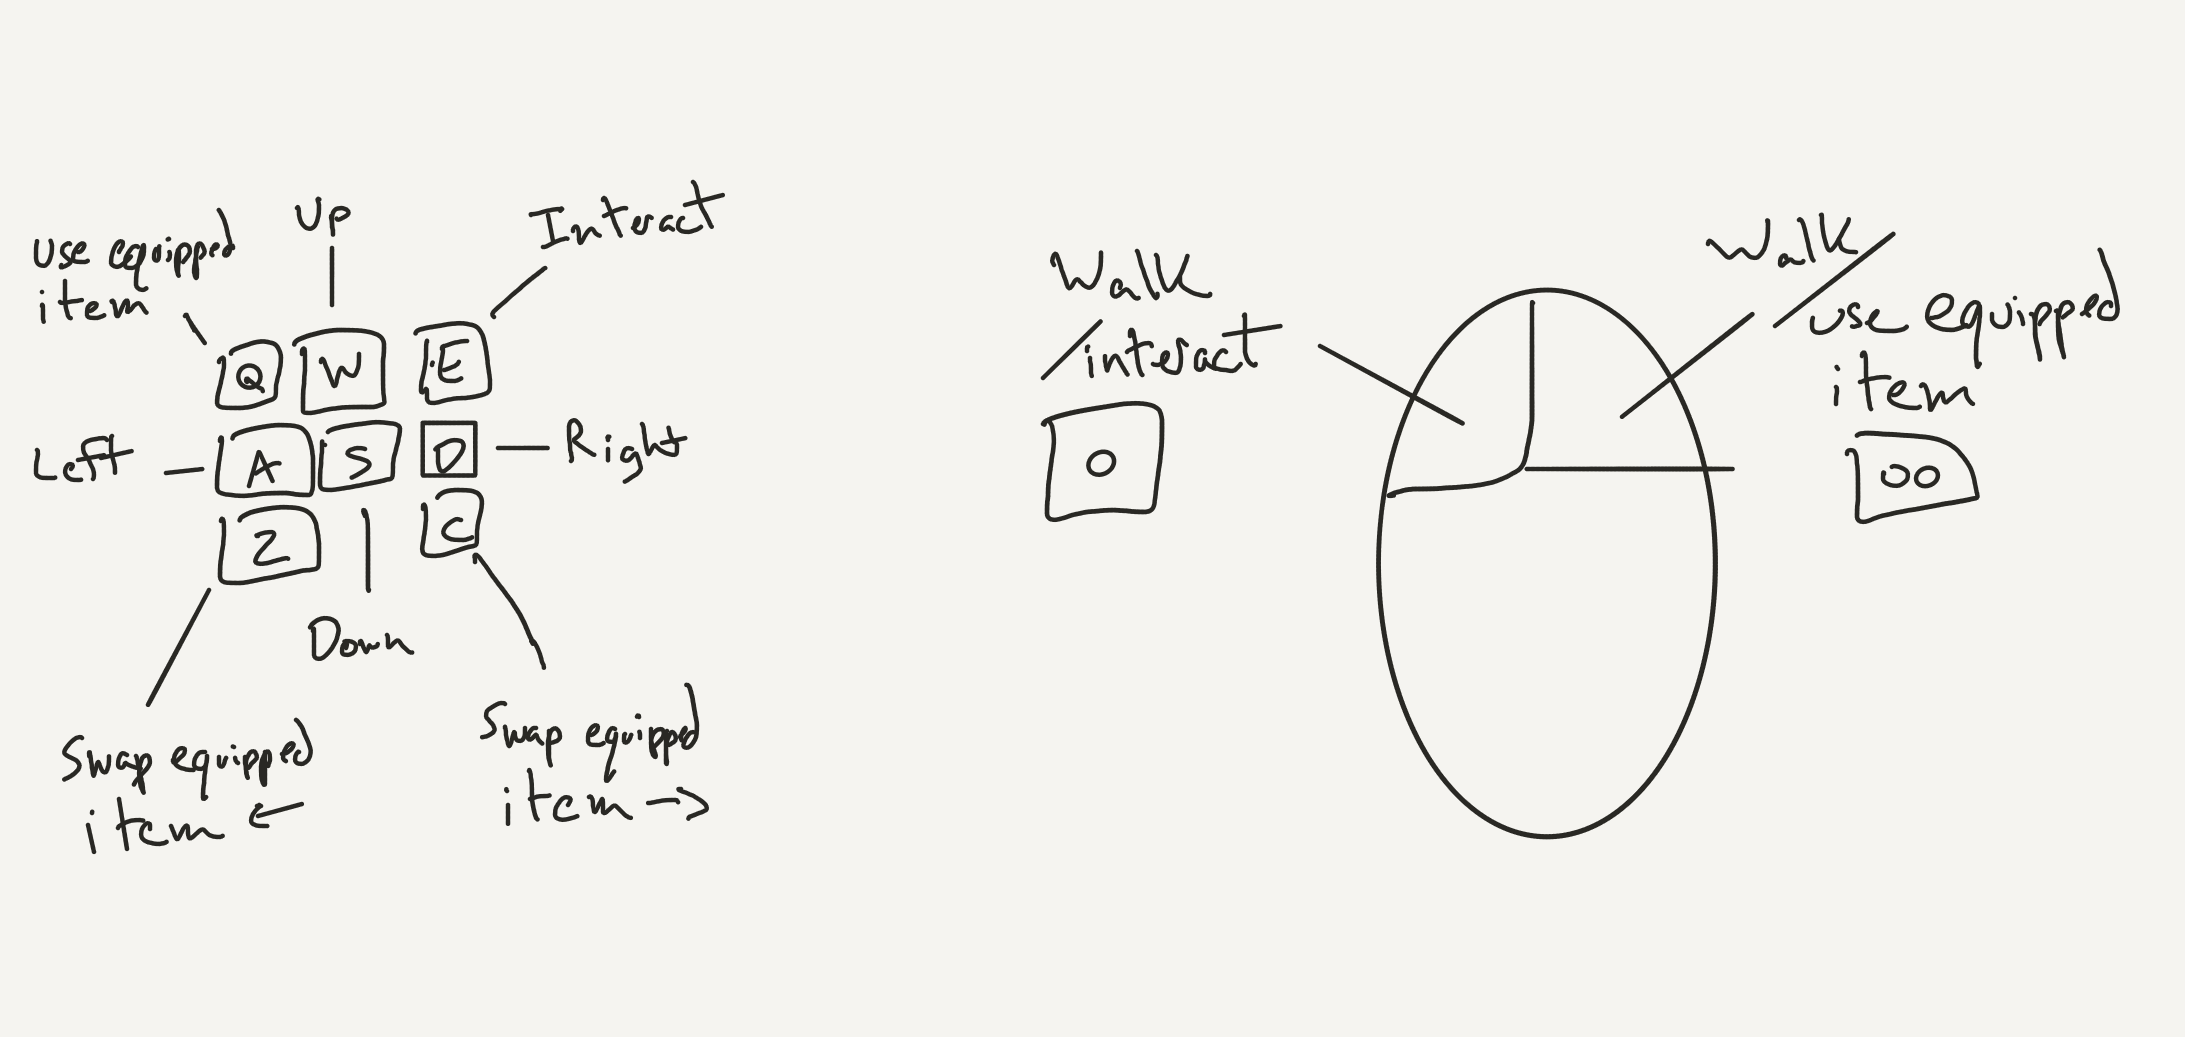 Up
Interact
use equipped
item
Q W E
Left
A S D
Right
Z
C
Down
Swap equipped
item ←
Swap equipped
item →
Walk
/interact
o
Walk/
use equipped
item
oo